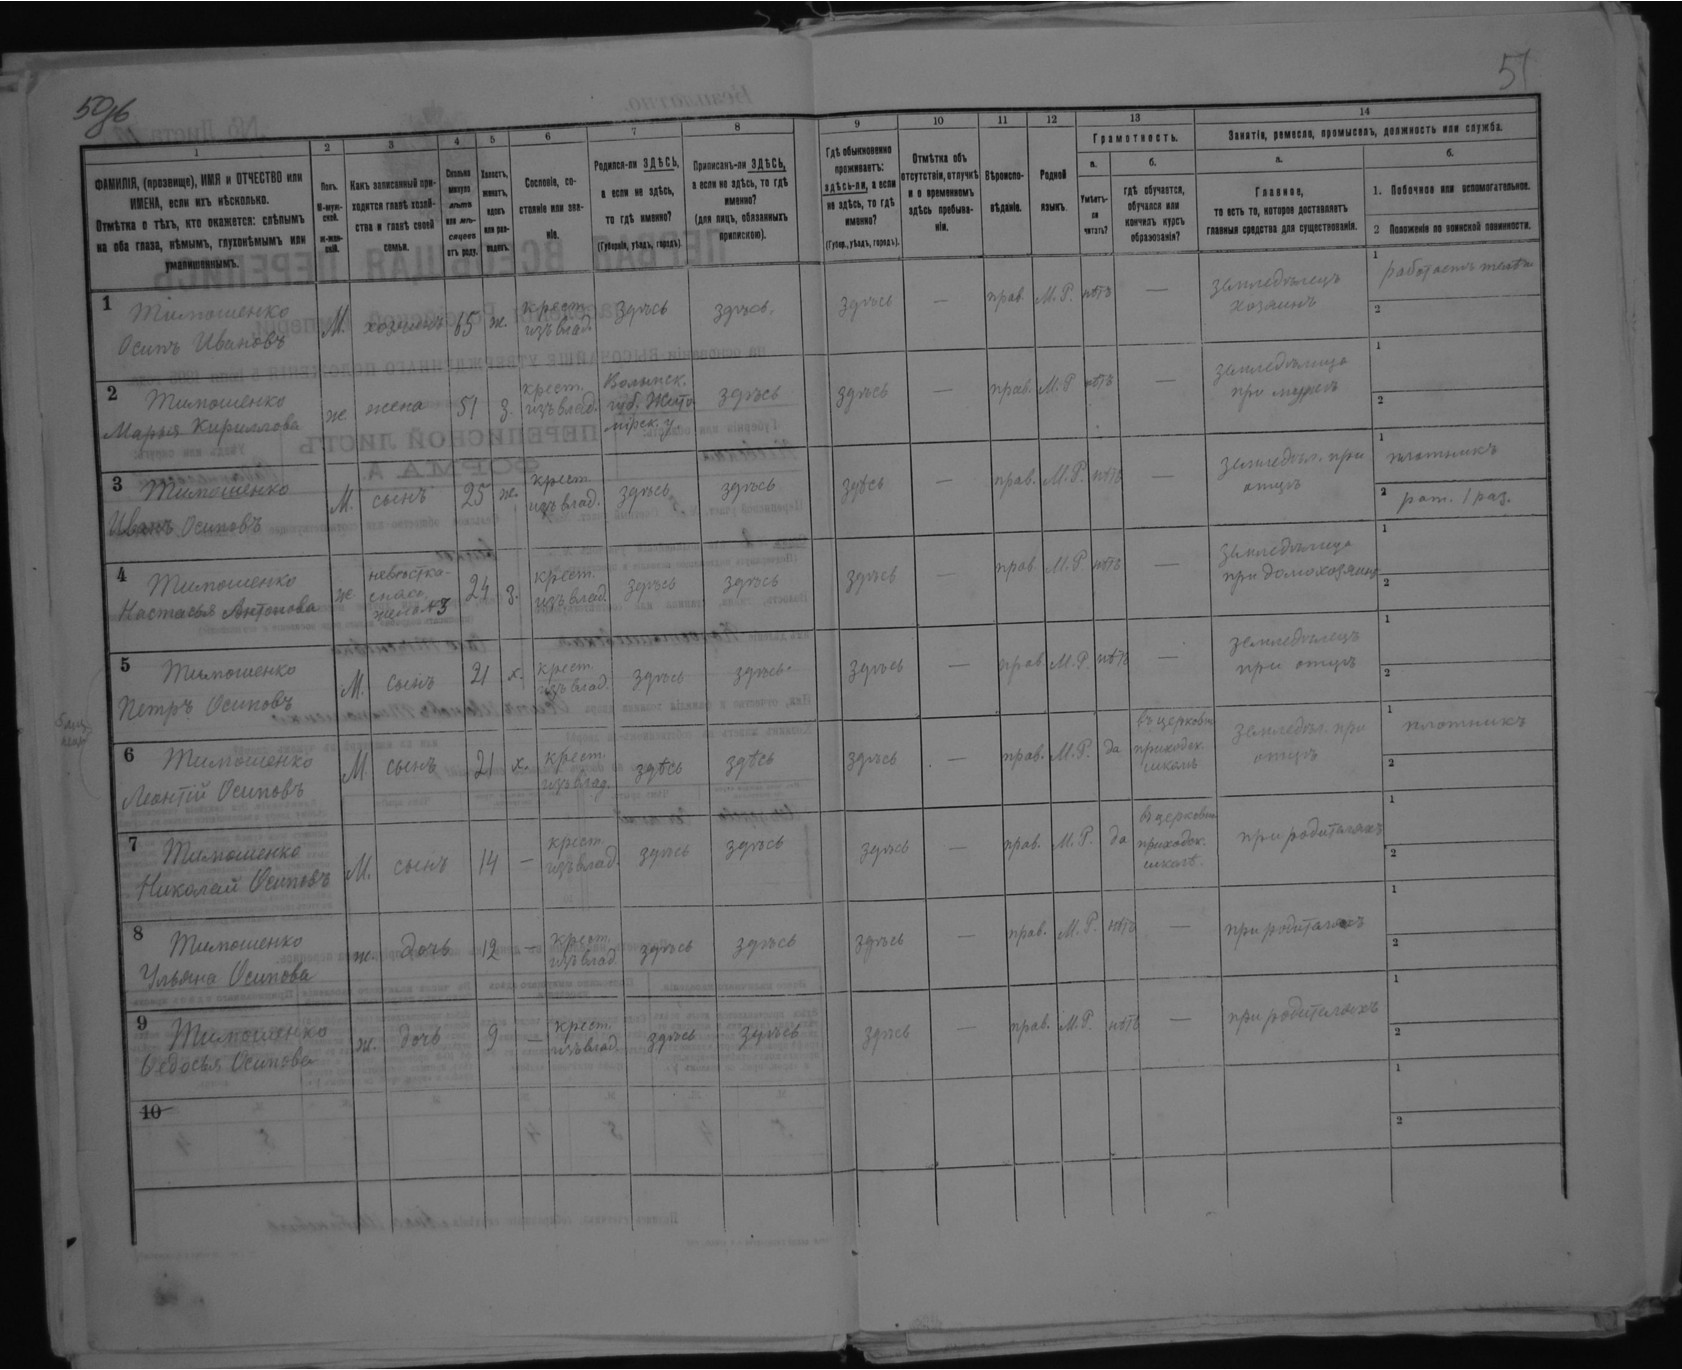 50об
51
1
2
3
4
5
6
7
8
9
10
11
12
13
14
ФАМИЛІЯ, (прозвище), ИМЯ и ОТЧЕСТВО или
ИМЕНА, если ихъ нѣсколько.
Отмѣтка о тѣхъ, кто окажется: слѣпымъ
на оба глаза, нѣмымъ, глухонѣмымъ или
умалишеннымъ.
Полъ.
М-муж-
ской.
ж-жен-
скій.
Какъ записанный при-
ходится главѣ хозяй-
ства и главѣ своей
семьи.
Сколько
минуло
лѣтъ
или мѣ-
сяцевъ
отъ роду.
Холостъ,
женатъ,
вдовъ
или раз-
веденъ.
Сословіе, со-
стояніе или зва-
ніе.
Родился-ли ЗДѢСЬ,
а если не здѣсь,
то гдѣ именно?
(Губернія, уѣздъ, городъ).
Приписанъ-ли ЗДѢСЬ,
а если не здѣсь, то гдѣ
именно?
(для лицъ, обязанныхъ
припискою).
Гдѣ обыкновенно
проживаетъ:
здѣсь-ли, а если
не здѣсь, то гдѣ
именно?
(Губер., уѣздъ, городъ).
Отмѣтка объ
отсутствіи, отлучкѣ
и о временномъ
здѣсь пребыва-
ніи.
Вѣроиспо-
вѣданіе.
Родной
языкъ.
Грамотность.
а.
Умѣетъ-
ли
читать?
б.
гдѣ обучается,
обучался или
кончилъ курсъ
образованія?
Занятія, ремесло, промыселъ, должность или служба.
а.
Главное,
то есть то, которое доставляетъ
главныя средства для существованія.
б.
1. Побочное или вспомогательное.
2 Положеніе по воинской повинности.
1 Тимошенко
Осипъ Ивановъ
М. хозяинъ 65 ж. крест. изъ влад. здѣсь здѣсь. здѣсь — прав. М.Р. нѣтъ — земледѣлецъ хозяинъ
1 работаетъ
2
2 Тимошенко
Марья Кириллова
ж жена 51 з. крест. изъ влад. Волынск. губ. Жито-мірск. у. здѣсь здѣсь — прав. М.Р нѣтъ — земледѣлица при мужѣ
1
2
3 Тимошенко
Иванъ Осиповъ
М. сынъ 25 ж. крест. изъ влад. здѣсь здѣсь здѣсь — прав. М.Р. нѣтъ — земледѣл. при отцѣ
1 плотникъ
2 рат. 1 раз.
4 Тимошенко
Настасья Антонова
ж невѣстка жена №3 24 з. крест. изъ влад. здѣсь здѣсь здѣсь — прав М.Р нѣтъ — земледѣлица при домохозяинѣ
1
2
5 Тимошенко
Петръ Осиповъ
М. сынъ 21 х. крест. изъ влад. здѣсь здѣсь. здѣсь — прав. М.Р. нѣтъ — земледѣлецъ при отцѣ
1
2
6 Тимошенко
Леонтій Осиповъ
М. сынъ 21 х. крест. изъ влад. здѣсь здѣсь здѣсь — прав. М.Р. да въ церковно приходск. школѣ земледѣл. при отцѣ
1 плотникъ
2
7 Тимошенко
Николай Осиповъ
М. сынъ 14 — крест. изъ влад. здѣсь здѣсь здѣсь — прав. М.Р. да въ церковно приходск. школѣ. при родителяхъ
1
2
8 Тимошенко
Ульяна Осипова
ж. дочь 12 — крест. изъ влад. здѣсь здѣсь здѣсь — прав. М.Р. нѣтъ — при родителяхъ
1
2
9 Тимошенко
Ѳедосья Осипова
ж. дочь 9 — крест. изъ влад. здѣсь здѣсь здѣсь — прав. М.Р. нѣтъ — при родителяхъ
1
2
10
1
2